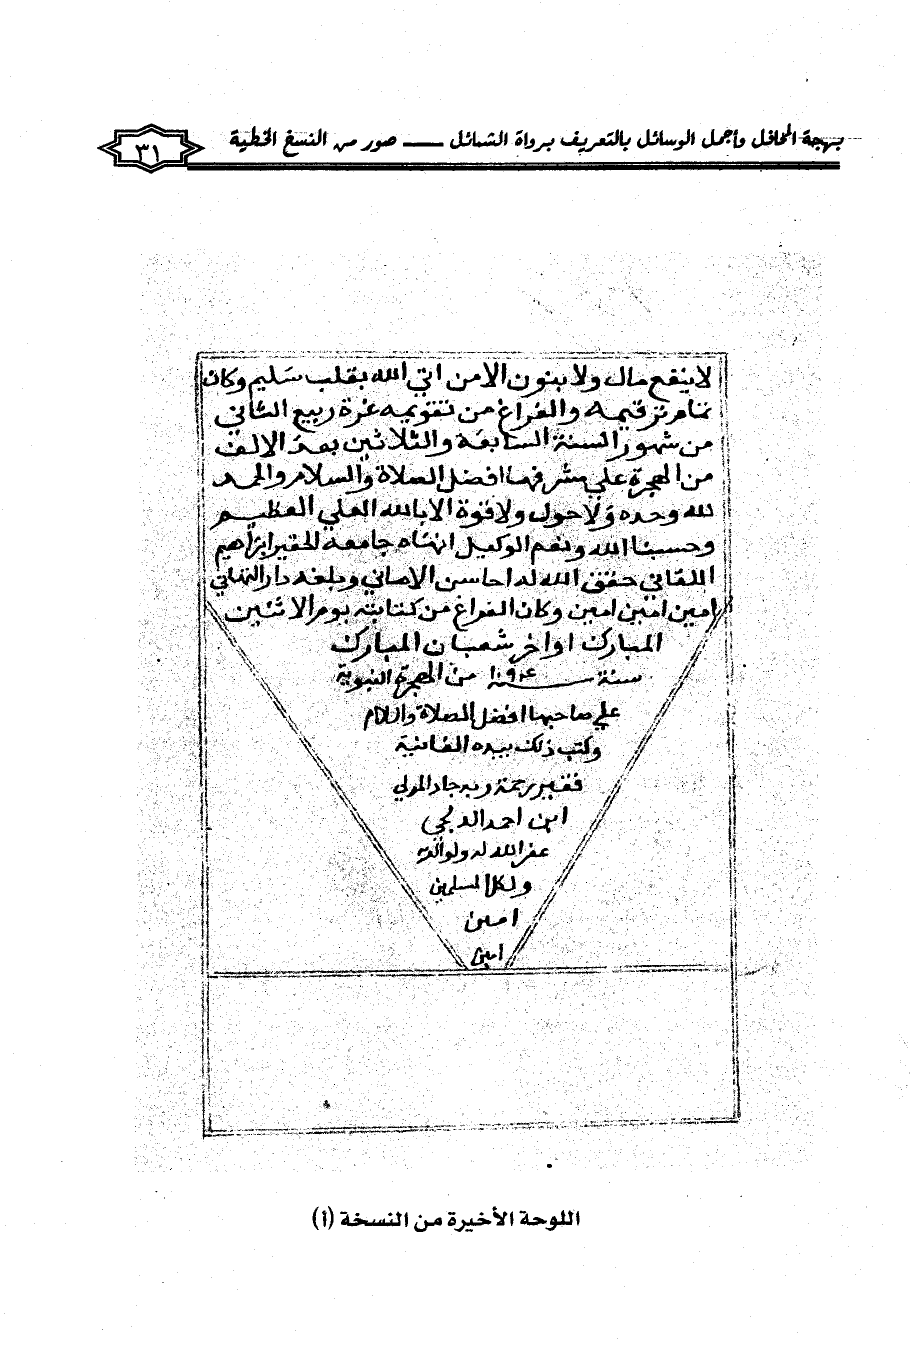 بهجة المحافل وأجمل الوسائل بالتعريف برواة الشمائل ـــــ صور من النسخ الخطية
٣١
لا ينفع مال ولا بنون الا من اتي الله بقلب سليم وكان
تمام ترقيمه والفراغ من تقويمه غرة ربيع الثاني
من شهور السنة السابعة والثلاثين بعد الالف
من الهجرة علي مشرفها افضل الصلاة والسلام والحمد
لله وحده ولا حول ولا قوة الا بالله العلي العظيم
وحسبنا الله ونعم الوكيل انهاه جامعه الحقير ابراهيم
اللقاني حقق الله له احاسن الاماني وبلغه دار التهاني
امين امين امين وكان الفراغ من كتابته يوم الاثنين
المبارك اواخر شعبان المبارك
سنة من الهجرة النبوية
علي صاحبها افضل الصلاة والسلام
وكتب ذلك بيده الفانية
فقير رحمة ربه جاد المولي
ابن احمد الدلجي
غفر الله له ولوالديه
ولكل المسلمين
امين
امين
اللوحة الأخيرة من النسخة (أ)